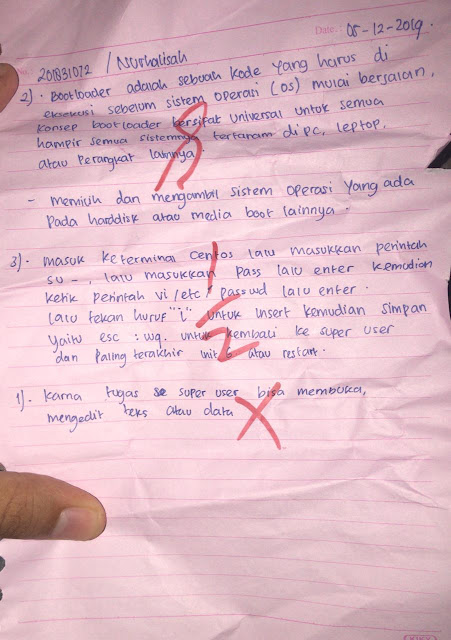 Date: 05-12-2019.
201831072 / Nurhalisah
2). Bootloader adalah sebuah kode yang harus di
eksekusi sebelum sistem operasi (os) mulai berjalan,
konsep bootloader bersifat universal untuk semua
hampir semua sistemnya tertanam di pc, leptop,
atau perangkat lainnya
- memilih dan mengambil sistem operasi yang ada
pada harddisk atau media boot lainnya.
3). masuk ke terminal Centos lalu masukkan perintah
su -, lalu masukkan pass lalu enter kemudian
ketik perintah vi /etc/passwd lalu enter.
lalu tekan huruf "i" untuk insert kemudian simpan
yaitu esc :wq. untuk kembali ke super user
dan paling terakhir init 6 atau restart.
1). karna tugas se super user bisa membuka,
mengedit teks atau data